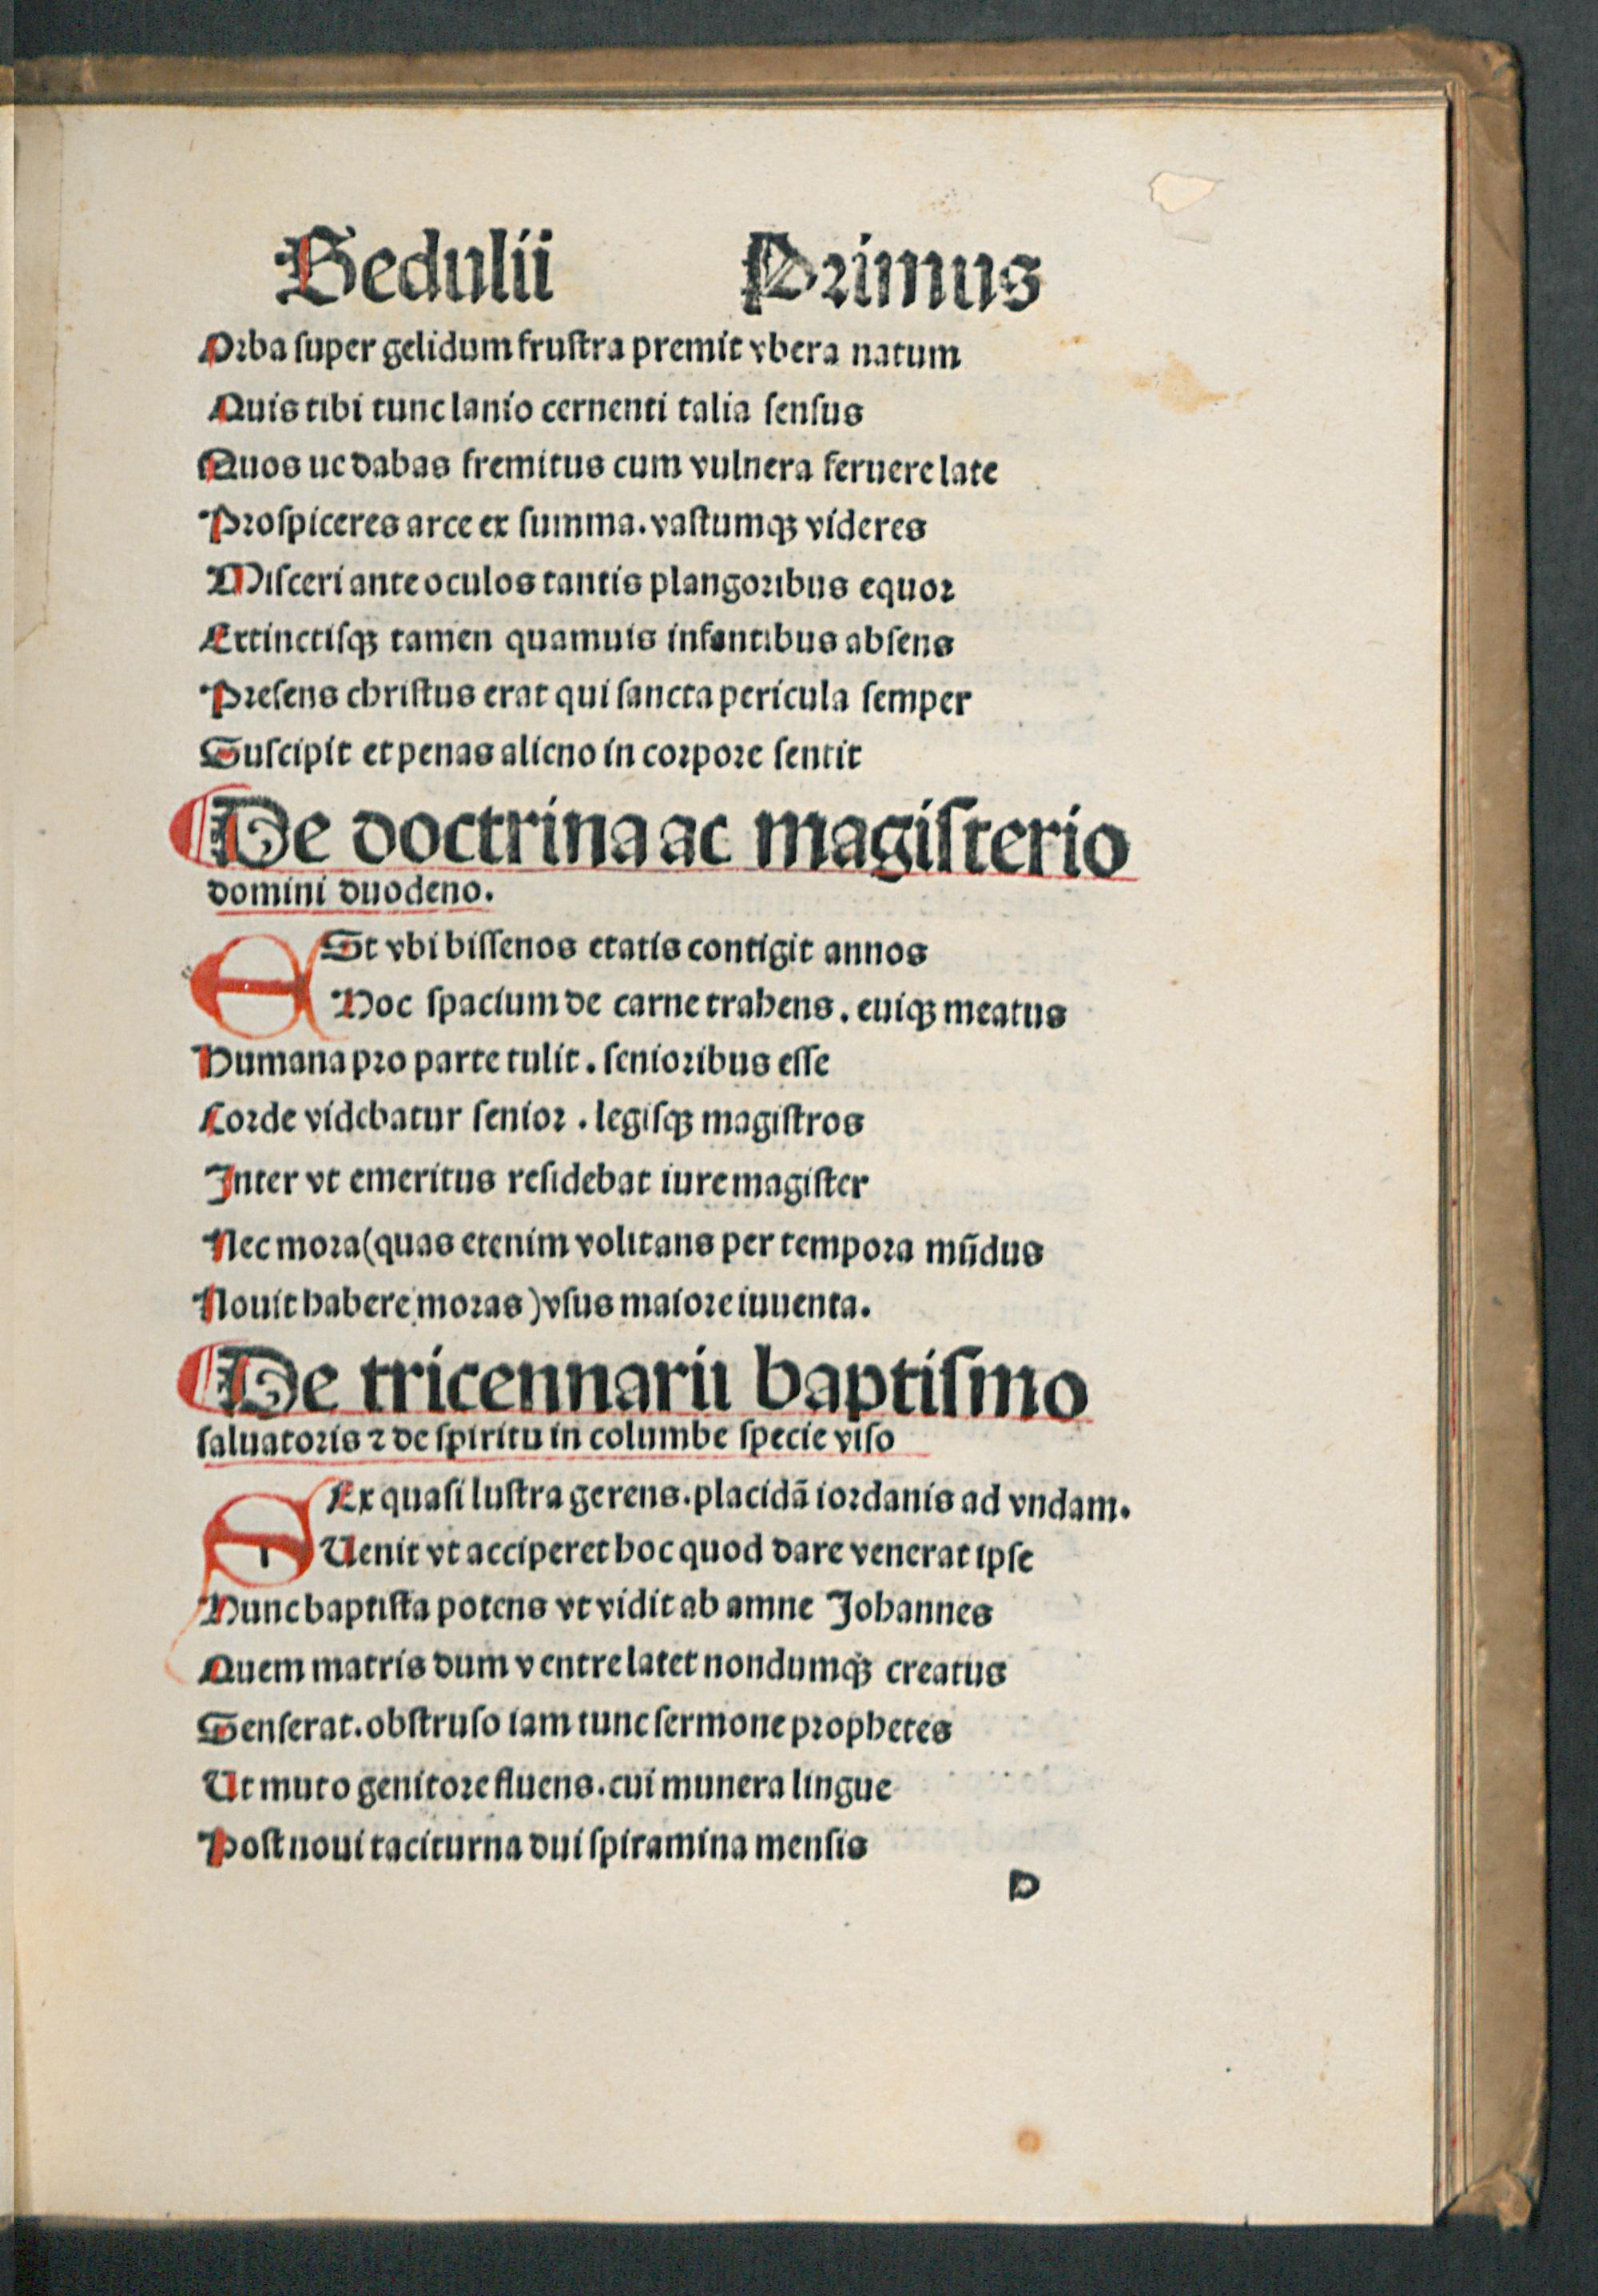 Sedulii Primus
Orba ſuper gelidum fruſtra premit vbera natum
Quis tibi tunc lanio cernenti talia ſenſus
Quos ue dabas fremitus cum vulnera feruere late
Proſpiceres arce ex ſumma. vaſtumqꝫ videres
Miſceri ante oculos tantis plangoribus equor
Extinctiſqꝫ tamen quamuis infantibus abſens
Preſens chriſtus erat qui ſancta pericula ſemper
Suſcipit et penas alieno in corpore ſentit
De doctrina ac magiſterio
domini duodeno.
ESt vbi biſſenos etatis contigit annos
Hoc ſpacium de carne trahens. euiqꝫ meatus
Humana pro parte tulit. ſenioribus eſſe
Corde videbatur ſenior. legiſqꝫ magiſtros
Inter vt emeritus reſidebat iure magiſter
Nec mora (quas etenim volitans per tempora mūdus
Nouit habere moras) vſus maiore iuuenta.
De tricennarii baptiſmo
ſaluatoris ⁊ de ſpiritu in columbe ſpecie viſo
SEx quaſi luſtra gerens. placidā iordanis ad vndam.
Uenit vt acciperet hoc quod dare venerat ipſe
Hunc baptiſta potens vt vidit ab amne Johannes
Quem matris dum ventre latet nondumqꝫ creatus
Senſerat. obſtruſo iam tunc ſermone prophetes
Ut muto genitore fluens. cui munera lingue
Poſt noui taciturna dui ſpiramina menſis
D